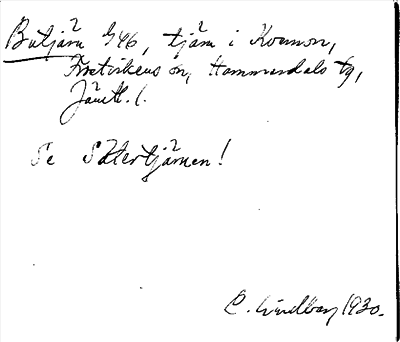 Butjärn 9/46, tjärn i Kvarnon,
Fyrtiskens sn, Hammerdals tg,
Jämtl. l.
Se Sätertjärnen!
C. Lindberg 1930.